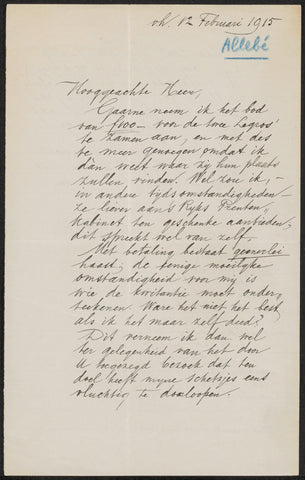 v/h, 12 Februari 1915
Allebé
Hooggeachte Heer,
Gaarne neem ik het bod
van f100.— voor de twee Legros'
te zamen aan, en met des
te meer genoegen omdat ik
dàn weet waar zij hun plaats
zullen vinden. Wel zou ik, —
in andere tijdsomstandigheden —
ze liever aan 's Ryks Prenten-
kabinet ten geschenke aanbieden;
dit spreekt wel van zelf.
Met betaling bestaat geenerlei
haast; de eenige moeilyke
omstandigheid voor my is
wie de kwitantie moet onder-
teekenen. Ware het niet het best
als ik het maar zelf deed?
Dit verneem ik dan wel
ter gelegenheid van het door
U toegezegd bezoek dat ten
doel heeft myne schetsjes eens
vluchtig te doorloopen.